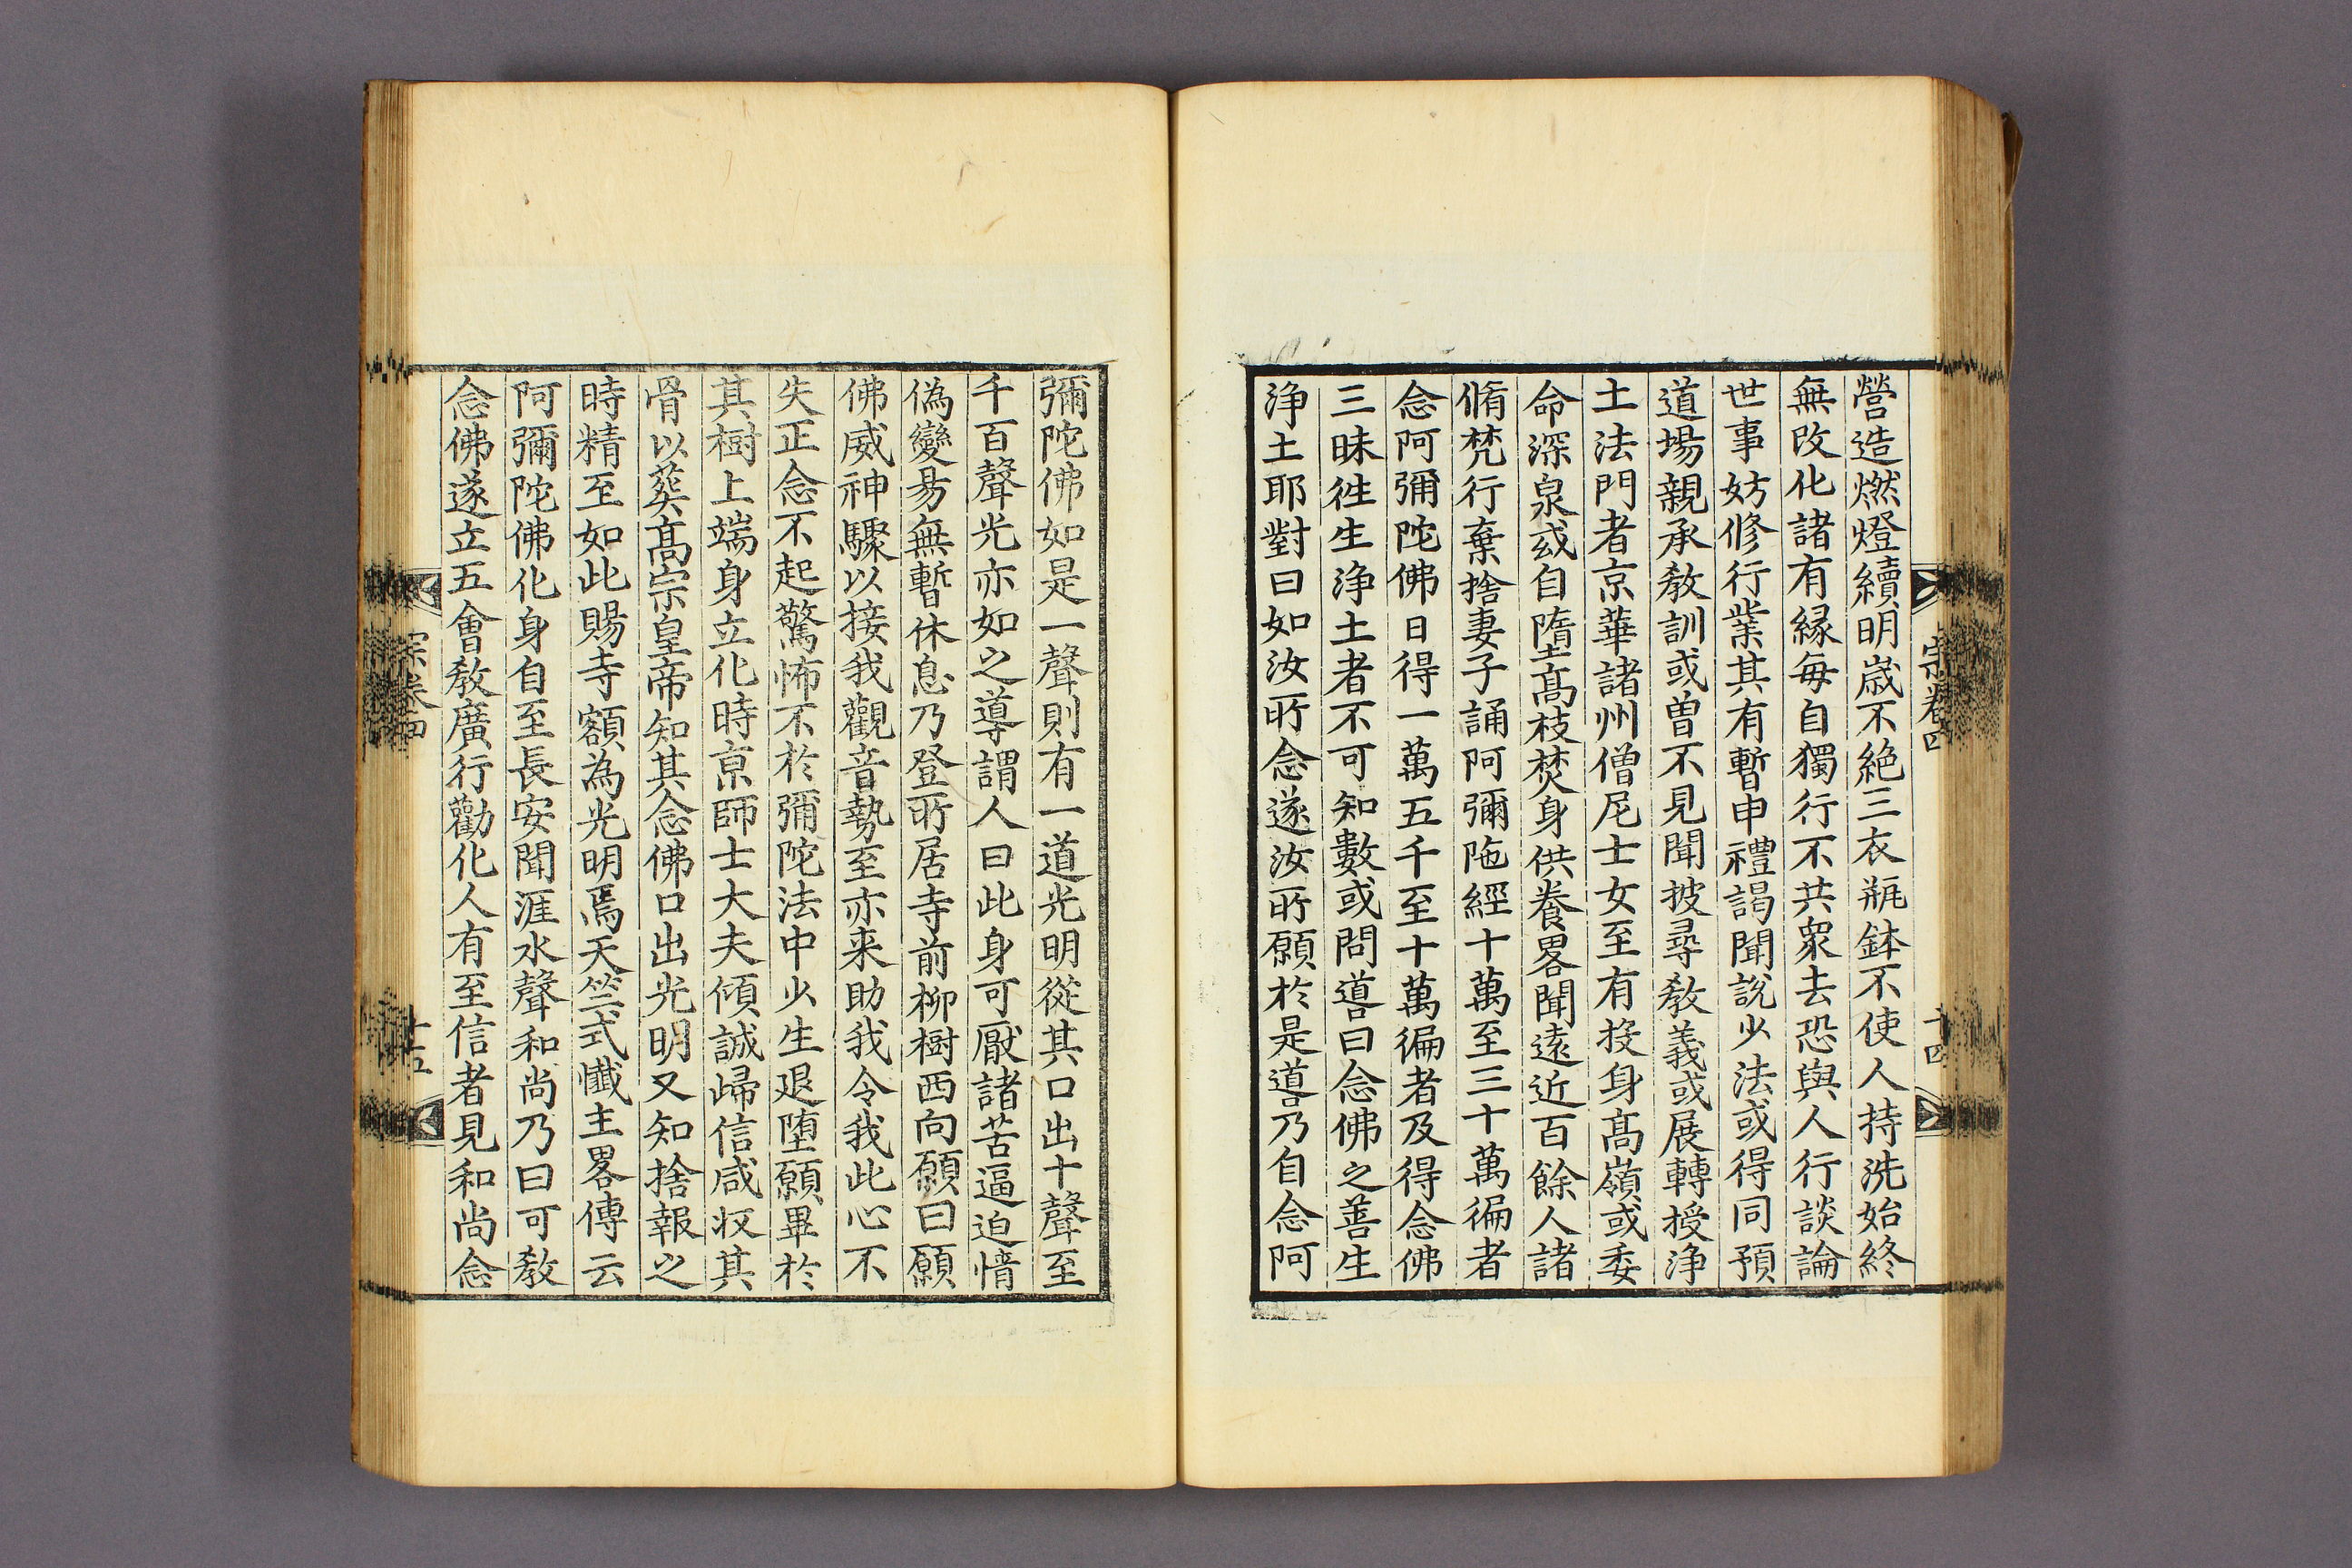 營造燃燈續明嵗不絶三衣瓶鉢不使人持洗始終
無改化諸有縁每自獨行不共衆去恐與人行談論
世事妨修行業其有暫申禮謁聞說少法或得同預
道場親承敎訓或曽不見聞披尋敎義或展轉授浄
土法門者京華諸州僧尼士女至有投身髙嶺或委
命深泉或自墮髙枝焚身供養畧聞遠近百餘人諸
脩梵行棄捨妻子誦阿彌陁經十萬至三十萬徧者
念阿彌陀佛日得一萬五千至十萬徧者及得念佛
三昧徃生浄土者不可知數或問導曰念佛之善生
浄土耶對曰如汝所念遂汝所願於是導乃自念阿
宗卷四
十四
彌陀佛如是一聲則有一道光明從其口出十聲至
千百聲光亦如之導謂人曰此身可厭諸苦逼迫情
偽變易無暫休息乃登所居寺前柳樹西向願曰願
佛威神驟以接我觀音勢至亦来助我令我此心不
失正念不起驚怖不於彌陀法中少生退墮願畢於
其樹上端身立化時京師士大夫傾誠歸信咸収其
骨以葬髙宗皇帝知其念佛口出光明又知捨報之
時精至如此賜寺額為光明焉天竺式懺主畧傳云
阿彌陀佛化身自至長安聞滻水聲和尚乃曰可敎
念佛遂立五會敎廣行勸化人有至信者見和尚念
宗卷四
十五